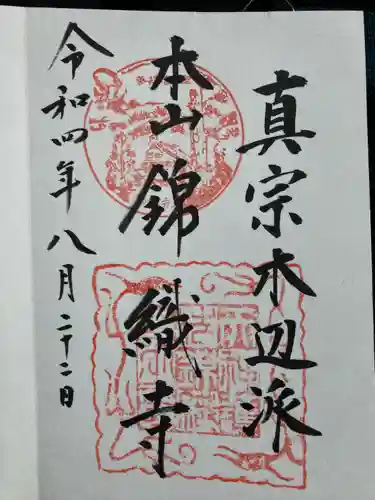 真宗木辺派
本山錦織寺
令和四年八月二十二日